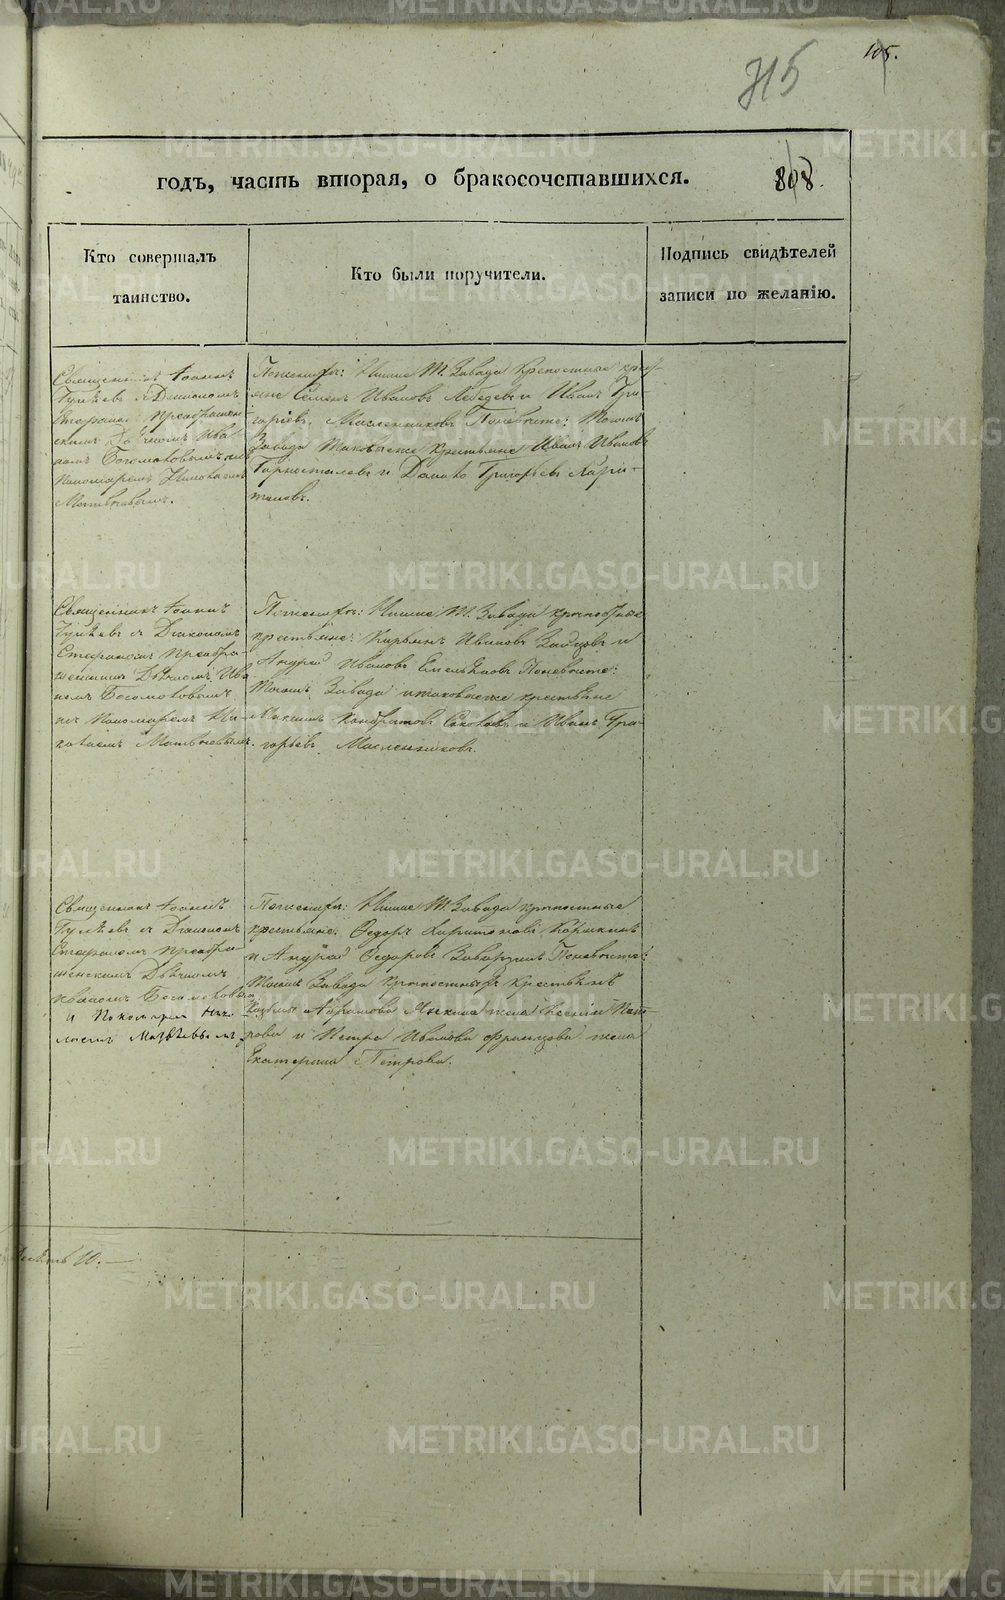 METRIKI.GASO-URAL.RU
105.
715
годъ, часть вторая, о бракосочетавшихся.
808.
Кто совершалъ
таинство.
Кто были поручители.
Подпись свидѣтелей
записи по желанію.
Священникъ Іоаннъ
съ Діакономъ
Стефаномъ Преображен-
скимъ Дьячкомъ Ива
номъ Богомоловымъ и
Пономаремъ Николаемъ
Матвѣевымъ.
Женихѣ: Нижне Т. Завода крѣпостные крес
Семенъ Ивановъ Лебедевъ и Иванъ Гри-
горьевъ Масленниковъ По невѣсте: Тогожъ
Завода таковыеже крестьяне Иванъ Ивановъ
Горносталевъ и Данило Григорьевъ Хари-
тоновъ.
Священникъ Іоаннъ
съ Діакономъ
Стефаномъ Преобра-
женскимъ Дьячкомъ Ива
номъ Богомоловымъ
и Пономаремъ Ни-
колаемъ Матвѣевымъ.
Женихѣ: Нижне Т. Завода крѣпостные
крестьяне: Ивановъ Зайцовъ и
Андрей Ивановъ Емельяновъ По невѣсте:
Тогожъ Завода таковыеже крестьяне
Максимъ Кондратовъ Соколовъ и Иванъ Гри-
горьевъ Масленниковъ.
Священникъ Іоаннъ
съ Діакономъ
Стефаномъ Преобра-
женскимъ Дьячкомъ
Иваномъ Богомоловымъ
и Пономарем Ник-
олаемъ Матвѣевымъ
Женихѣ: Нижне Т. Завода крѣпостные
крестьяне: Федоръ Харитоновъ
и Андрей Федоровъ По невѣсте:
Тогожъ Завода крѣпостныхъ крестьянъ
Козьмы Абрамова жена Пет-
рова и Петра Иванова жена
Екатерина Петрова.
10.